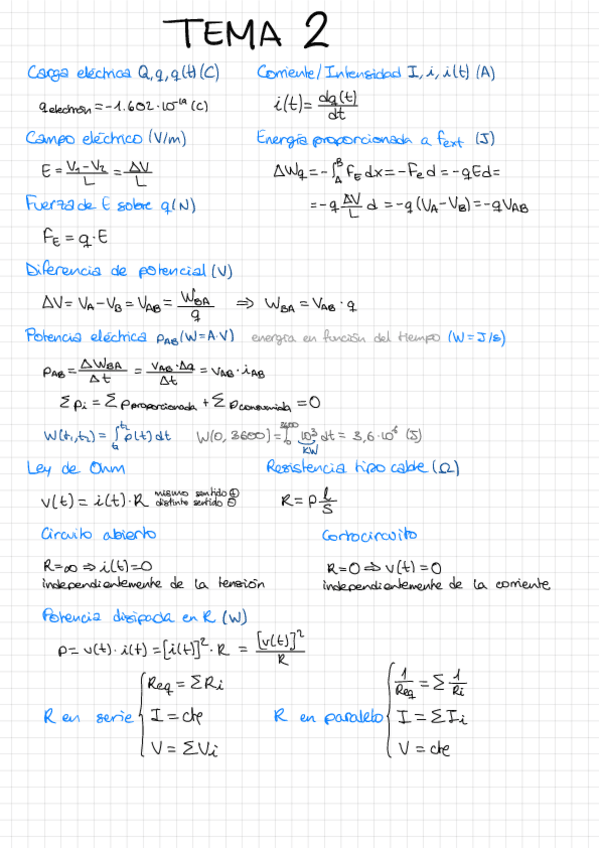 TEMA 2
Carga eléctrica Q, q, q(t) (C)
q electrón = -1.602·10⁻¹⁹ (C)
Corriente/Intensidad I, i, i(t) (A)
i(t) = dq(t)/dt
Campo eléctrico (V/m)
E = (V₁-V₂)/L = ΔV/L
Energía proporcionada a fext (J)
ΔWq = -∫_A^B F_E dx = -F_e d = -qEd =
= -q ΔV/L d = -q (V_A - V_B) = -qV_AB
Fuerza de E sobre q (N)
F_E = q·E
Diferencia de potencial (V)
ΔV = V_A - V_B = V_AB = W_BA/q ⇒ W_BA = V_AB · q
Potencia eléctrica P_AB (W=A·V) energía en función del tiempo (W=J/s)
P_AB = ΔW_BA/Δt = V_AB·Δq/Δt = V_AB · i_AB
Σ Pi = Σ P proporcionada + Σ P consumida = 0
W(t₁,t₂) = ∫_t₁^t₂ p(t) dt W(0, 3600) = ∫_0^3600 10³ dt = 3,6·10⁶ (J)
KW
Ley de Ohm
v(t) = i(t)·R mismo sentido ⊕
distinto sentido ⊖
Resistencia tipo cable (Ω)
R = ρ l/S
Circuito abierto
R=∞ ⇒ i(t)=0
independientemente de la tensión
Cortocircuito
R=0 ⇒ v(t)=0
independientemente de la corriente
Potencia disipada en R (W)
P = v(t)·i(t) = [i(t)]²·R = [v(t)]²/R
R en serie { Req = ΣRi
I = cte
V = ΣVi
R en paralelo { 1/Req = Σ 1/Ri
I = ΣIi
V = cte